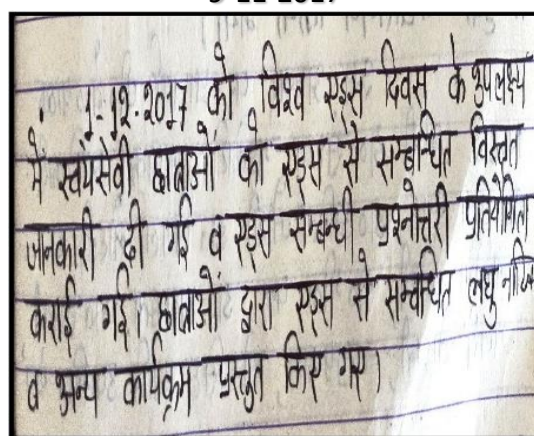 1-12-2017 को विश्व एड्स दिवस के उपलक्ष्य
में स्वयंसेवी छात्राओं को एड्स से सम्बन्धित विस्तृत
जानकारी दी गई व एड्स सम्बन्धी प्रश्नोत्तरी प्रतियोगिता
कराई गई। छात्राओं द्वारा एड्स से सम्बन्धित लघु
व अन्य कार्यक्रम प्रस्तुत किए गए।